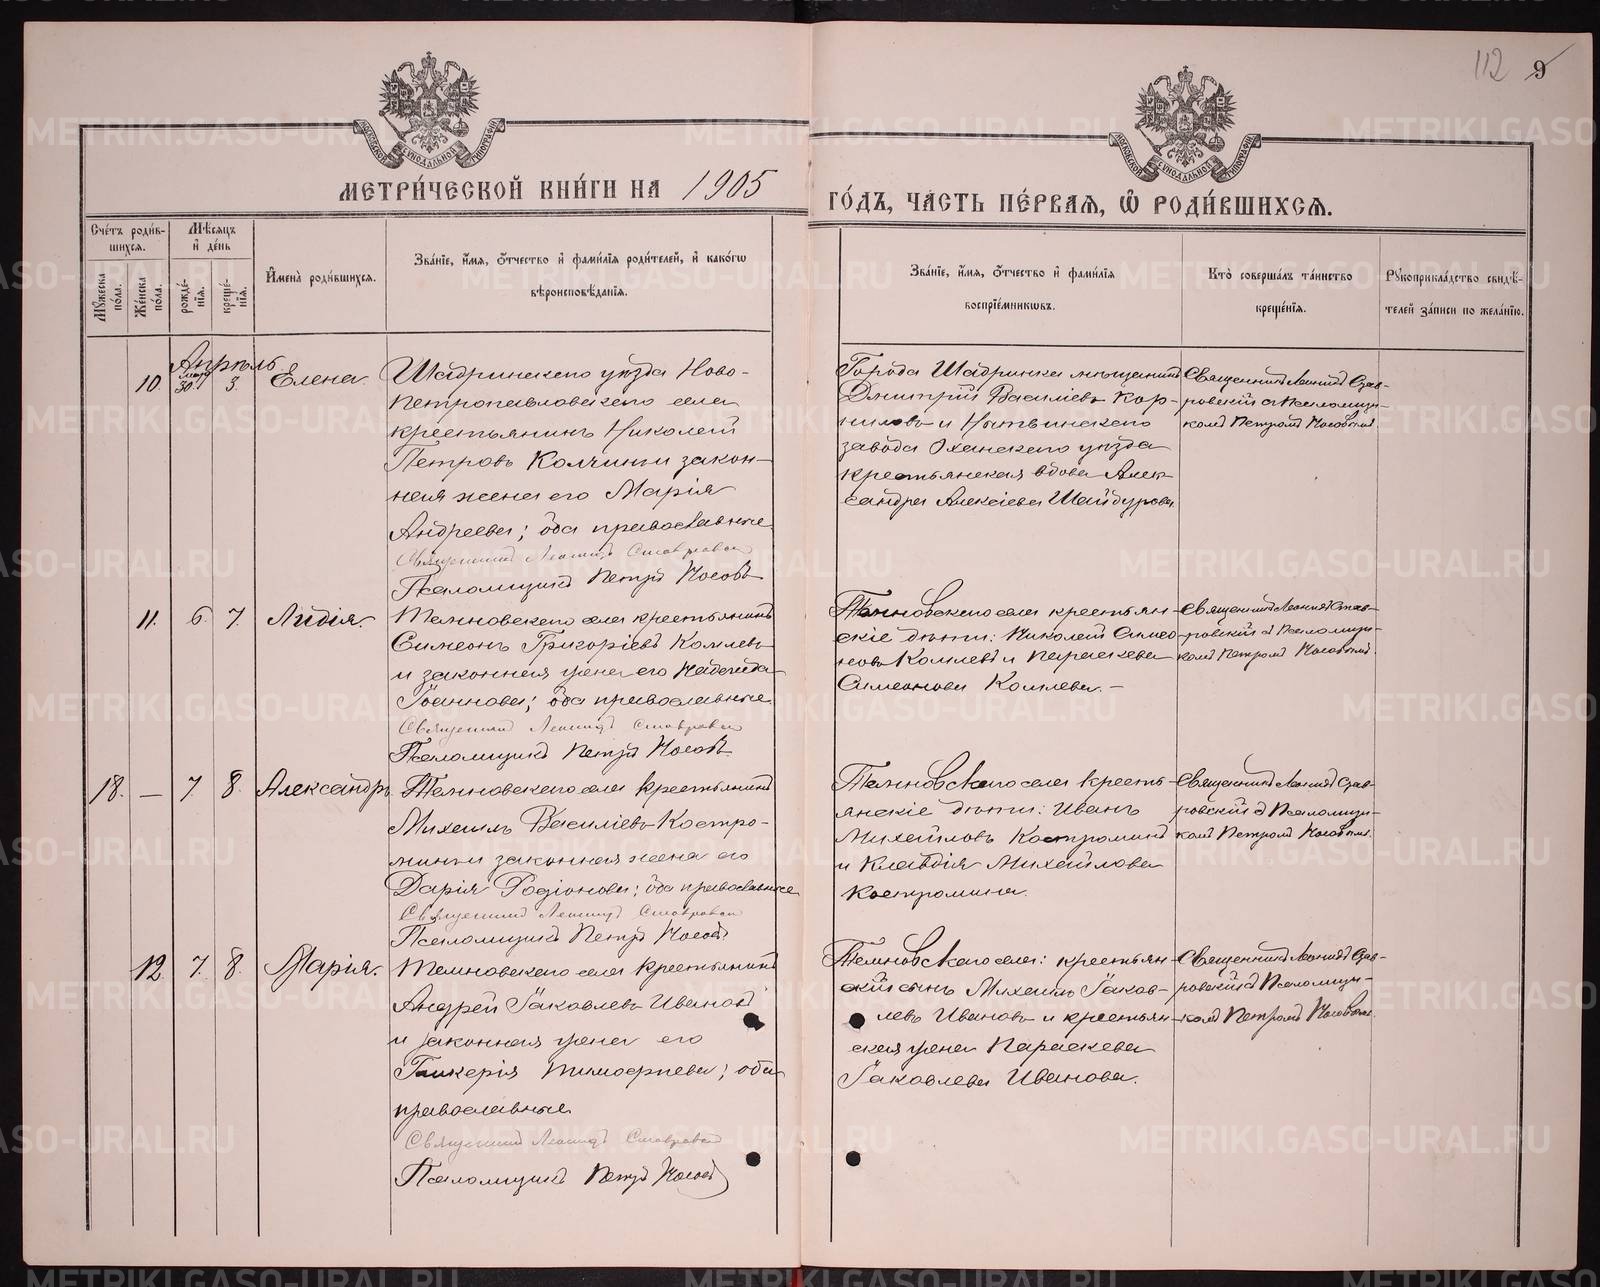 112 9
МЕТРИ́ЧЕСКОЙ КНИ́ГИ НА 1905 ГО́ДЪ, ЧА́СТЬ ПЕ́РВАЯ, Ѡ РОДИ́ВШИХСЯ.
МОСКОВСКОЙ СѴНОДАЛЬНОЙ ТИПОГРАФІИ
МОСКОВСКОЙ СѴНОДАЛЬНОЙ ТИПОГРАФІИ
Сче́тъ роди́в-
шихся.
Мꙋ́жеска по́ла.
Же́нска по́ла.
Мѣ́сяцъ
и де́нь
рожде́-
нія.
креще́-
нія.
И҆мена̀ роди́вшихся.
Зва́ніе, и́мя, о́тчество и фами́лія роди́телей, и како́гѡ
вѣроисповѣ́данія.
Зва́ніе, и́мя, о́тчество и фами́лія
воспріе́мникѡвъ.
Кто̀ соверша́лъ та́инство
креще́нія.
Рꙋкоприкла́дство свидѣ́-
телей за́писи по жела́нію.
Апрѣль
10. Март. 30. 3. Елена.
Шадринскаго уѣзда Ново-
петропавловскаго села
крестьянинъ Николай
Петровъ Колчинъ и закон-
ная жена его Марія
Андреева; оба православные.
Священникъ Леонидъ Ставровскій
Псаломщикъ Петръ Носовъ
Города Шадринска мѣщанинъ
Дмитрій Василіевъ Кор-
ниловъ и Нытвинскаго
завода Оханскаго уѣзда
крестьянская вдова Алек-
сандра Алексіева Шайдурова
Священникъ Леонидъ Став-
ровскій съ Псаломщи-
комъ Петромъ Носовымъ.
11. 6. 7. Лидія.
Темновскаго села крестьянинъ
Симеонъ Григоріевъ Комлевъ
и законная жена его Надежда
Іоаннова; оба православные.
Священникъ Леонидъ Ставровскій
Псаломщикъ Петръ Носовъ
Темновскаго села крестьян-
скіе дѣти: Николай Симео-
новъ Комлевъ и Параскева
Симеонова Комлева. –
Священникъ Леонидъ Став-
ровскій съ Псаломщи-
комъ Петромъ Носовымъ.
18. — 7. 8. Александръ.
Темновскаго села крестьянинъ
Михаилъ Василіевъ Костро-
минъ и законная жена его
Дарія Родіонова; оба православные
Священникъ Леонидъ Ставровскій
Псаломщикъ Петръ Носовъ
Темновскаго села кресть-
янскіе дѣти: Иванъ
Михайловъ Костроминъ
и Клавдія Михайлова
Костромина.
Священникъ Леонидъ Став-
ровскій съ Псаломщи-
комъ Петромъ Носовымъ.
12. 7. 8. Марія.
Темновскаго села крестьянинъ
Андрей Іаковлевъ Ивановъ
и законная жена его
Гликерія Тимофеева; оба
православные.
Священникъ Леонидъ Ставровскій
Псаломщикъ Петръ Носовъ
Темновскаго села: крестьян-
скій сынъ Михаилъ Іаков-
левъ Ивановъ и крестьян-
ская жена Параскева
Іаковлева Иванова.
Священникъ Леонидъ Став-
ровскій съ Псаломщи-
комъ Петромъ Носовымъ.
METRIKI.GASO-URAL.RU